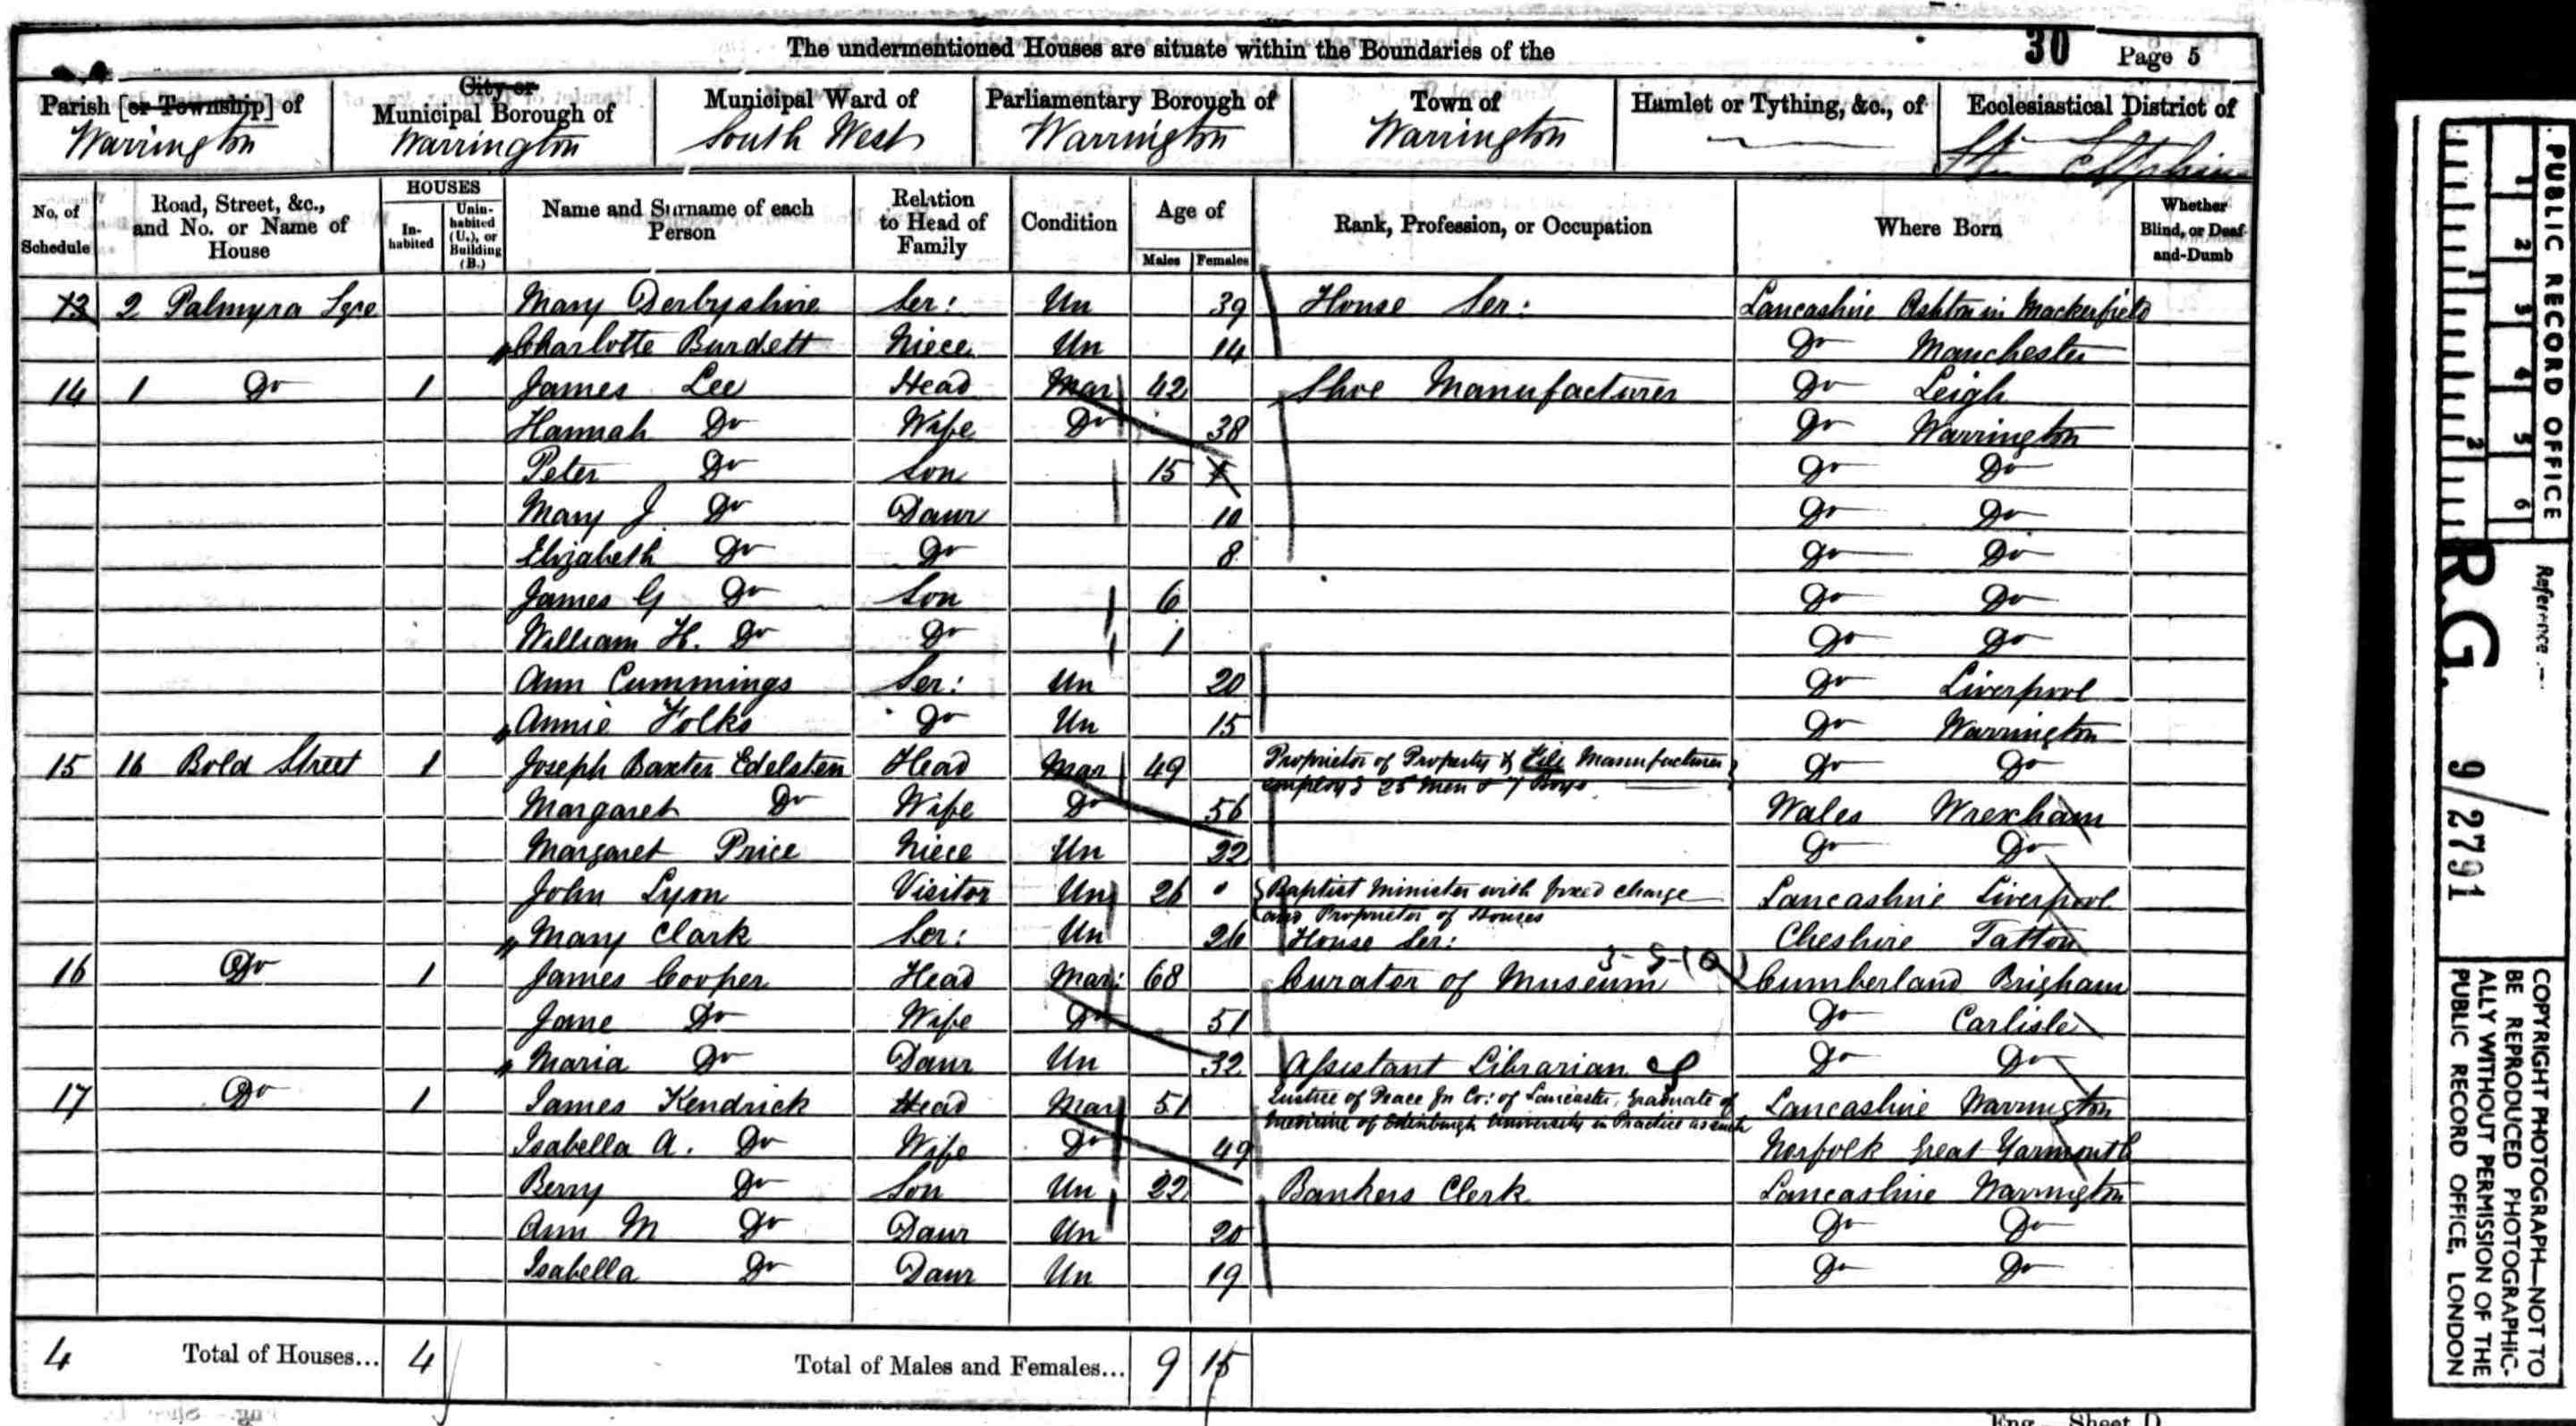 The undermentioned Houses are situate within the Boundaries of the
30 Page 5
Parish [or Township] of
Warrington
City or
Municipal Borough of
Warrington
Municipal Ward of
South West
Parliamentary Borough of
Warrington
Town of
Warrington
Hamlet or Tything, &c., of
Ecclesiastical District of
No. of Schedule
Road, Street, &c., and No. or Name of House
HOUSES
In-habited
Unin-habited (U.), or Building (B.)
Name and Surname of each Person
Relation to Head of Family
Condition
Age of
Males Females
Rank, Profession, or Occupation
Where Born
Whether Blind, or Deaf-and-Dumb
13 2 Palmyra Sqre Mary Derbyshire Ser: Un 39 House Ser: Lancashire Ashton in Mackerfield
Charlotte Burdett Niece Un 14 Do Manchester
14 1 Do 1 James Lee Head Mar 42 Shoe Manufacturer Do Leigh
Hannah Do Wife Do 38 Do Warrington
Peter Do Son 15 Do Do
Mary J. Do Daur 10 Do Do
Elizabeth Do Do 8 Do Do
James G Do Son 6 Do Do
William H. Do Do 1 Do Do
Ann Cummings Ser: Un 20 Do Liverpool
Annie Folks Do Un 15 Do Warrington
15 16 Bold Street 1 Joseph Baxter Edelsten Head Mar 49 Proprietor of Property & File Manufacturer Do Do
employs 25 Men & 7 Boys
Margaret Do Wife Do 56 Wales Wrexham
Margaret Price Niece Un 22 Do Do
John Lyon Visitor Un 26 Baptist Minister with fixed charge Lancashire Liverpool
and Proprietor of Houses
Mary Clark Ser: Un 26 House Ser: Cheshire Tatton
16 Do 1 James Cooper Head Mar: 68 Curator of Museum Cumberland Brigham
Jane Do Wife Do 51 Do Carlisle
Maria Do Daur Un 32 Assistant Librarian Do Do
17 Do 1 James Kendrick Head Mar 51 Justice of Peace for Co: of Lancaster, Graduate of Lancashire Warrington
Medicine of Edinburgh University in Practice as such
Isabella A. Do Wife Do 49 Norfolk Great Yarmouth
Berry Do Son Un 22 Bankers Clerk Lancashire Warrington
Ann M Do Daur Un 20 Do Do
Isabella Do Daur Un 19 Do Do
4 Total of Houses... 4 Total of Males and Females... 9 15
Eng.—Sheet D.
PUBLIC RECORD OFFICE
1 2 3 4 5 6
1 2
Reference:—
R.G. 9/2791
COPYRIGHT PHOTOGRAPH—NOT TO
BE REPRODUCED PHOTOGRAPHIC-
ALLY WITHOUT PERMISSION OF THE
PUBLIC RECORD OFFICE, LONDON